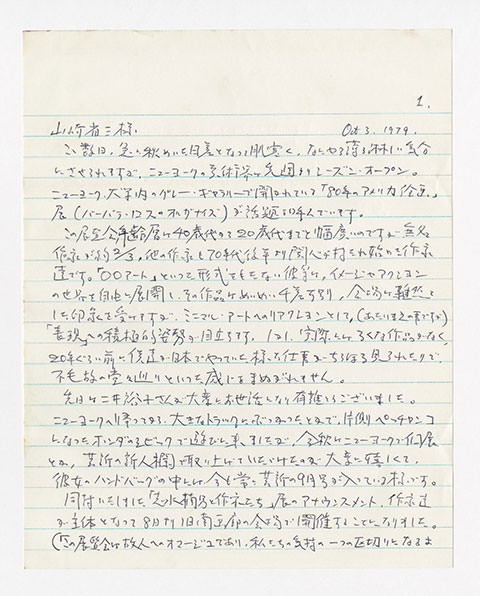 1.
山岸省三様. Oct 3, 1979.
この数日、急に秋めいた日差となって肌寒く、なんやら薄ら淋しい気分
にさせられますが、ニューヨークの美術界は先週よりシーズン・オープン。
ニューヨーク大学内のグレー・ギャラリーで開かれている「80年のアメリカ絵画」
展(バーバラ・ロスのオルガナイズ)が話題を呼んでいます。
この展覧会年齢層は40歳代から20歳代までと幅広いのですが無名
作家が約2/3、他の作家も70年代後半より関心が持たれ始めた作家
達です。「○○アート」といって形式をもたない彼等が、イメージやアクション
の世界を自由に展開し、その作品はめいめい千差万別、会場は雑然と
した印象を受けますが、ミニマル・アートへのリアクションとして、(あたりまえの事ですが)
「表現」への積極的な姿勢が目立ちます。しかし、実際にはろくな作品がなく、
20年ぐらい前に僕達が日本でやっていた様な仕事がちらほら見られたりで、
不毛故の堂々巡りといった感じはまぬがれません。
先日は二井裕子さんが大変お世話になり有難うございました。
ニューヨークへ帰ってから、大きなトラックにぶつかったとかで、片側ペッチャンコ
になったホンダのシビックで遊びに来ましたが、今秋はニューヨークで個展
とか、芸術の新人欄で取り上げていただけたのが大変嬉しくて、
彼女のハンドバッグの中には今も常に芸術の9月号が入っている様です。
同封いたしました「志水楠男と作家たち」展のアナウンスメント、作家達
が主体となって8日より旧南画廊の会場で開催することになりました。
(「この展覧会は故人へのオマージュであり、私たちの気持の一つの区切りになるよ